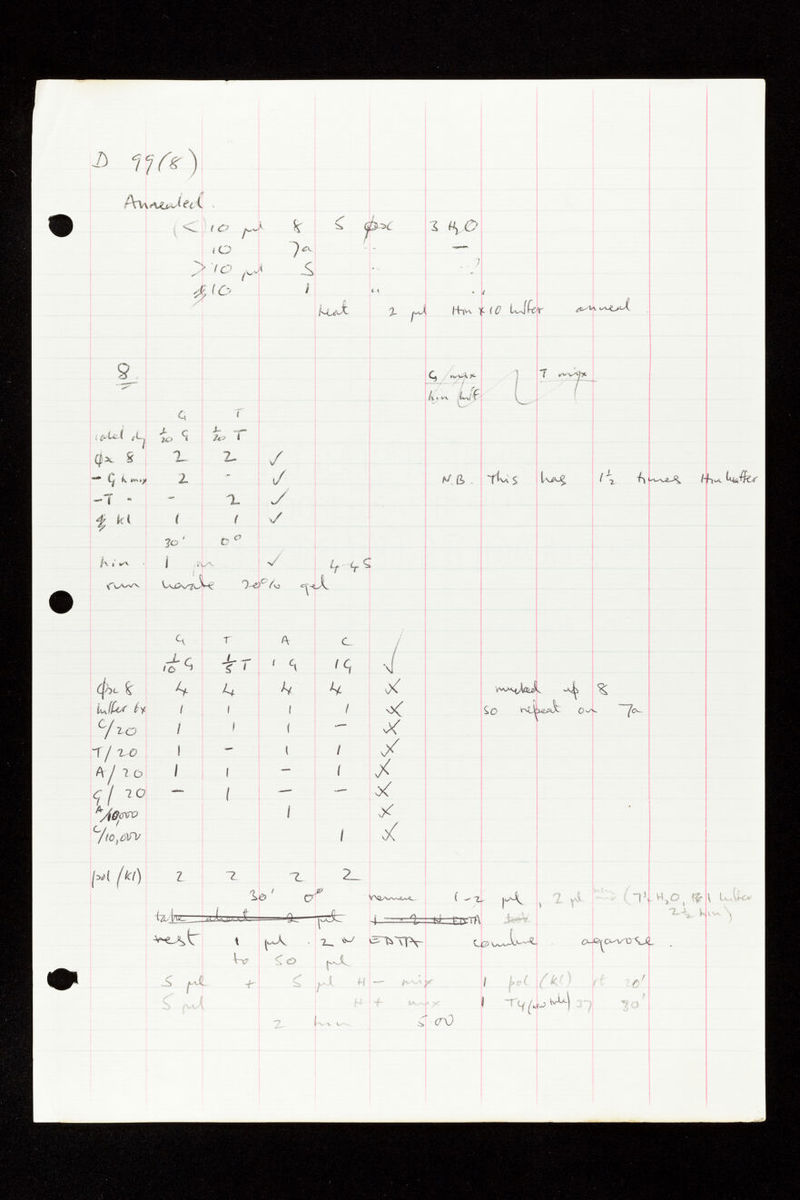 D 99(8)
Annealed.
(<) 10 µl 8 5 φx 3 H2O
10 7a " —
> 10 µl 5 "
10 1 " "
heat 2 µl Hin x 10 buffer anneal
8
G mix T mix
hin buf
G T
1/20 G 1/20 T
φx 8 2 2 ✓
- G h mix 2 - ✓ N.B. This has 1½ times Hin buffer
- T " - 2 ✓
kl 1 1 ✓
30' 0°
hin. 1 ✓ 4-45
run 20% gel
G T A C
1/10 G 1/5 T 1 G 1 G ✓
φx 8 4 4 4 4 X mucked up 8
buffer 6x 1 1 1 1 X so repeat on 7a
C/20 1 1 1 — X
T/20 1 - 1 1 X
A/20 1 1 - 1 X
G/20 - 1 - - X
A/10,000 1 X
C/10,000 1 X
pol (kl) 2 2 2 2
30' 0° remove 1-2 µl, 2 µl (7½ H2O, 1 buffer
take about 2 µl 1 .2 N EDTA 2½ hin)
rest 1 µl .2 N EDTA combine. agarose.
to 50 µl
5 µl + 5 µl H - mix 1 pol (kl) rt 20'
5 µl H + mix 1 T4 (new tube) 37 80'
2 hin 500